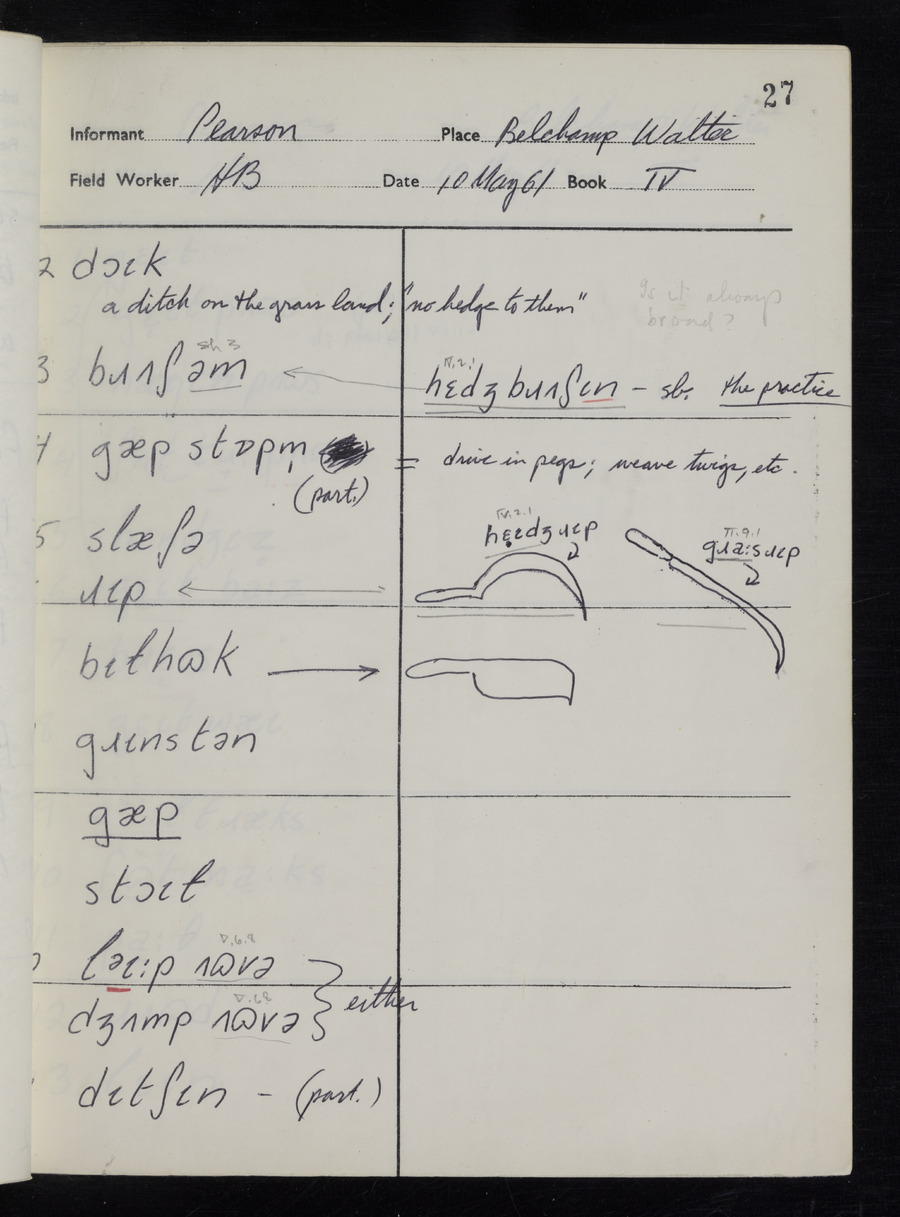 27
Informant Pearson Place Belchamp Walter
Field Worker HB Date 10 May 61 Book IV
2 dɔɪk
a ditch on the grass land; "no hedge to them"
Is it always
broad?
sh 3
3 bʌɹʃəm
IV.2.1
hɛdʒ bʌɹʃɪn – sb. the practice
4 gæp stɒpm̩ = drive in pegs; weave twigs, etc.
(part.)
5 slæʃə
IV.2.1
hɛɪdʒ ɹɪp
II.9.1
gɹaːs ɹɪp
ɹɪp
bɪthʊk
gɹɪnstən
gæp
stɔɪt
V.6.8
lɛɪːp ʌʊvə
V.6.8
dʒʌmp ʌʊvə
either
dɪtʃɪn – (part.)